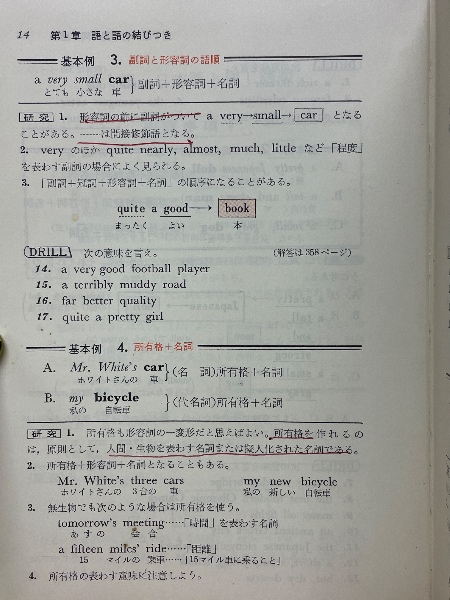 14 第1章 語と語の結びつき
基本例 3. 副詞と形容詞の語順
a very small car}副詞+形容詞+名詞
とても 小さな 車
研究 1. 形容詞の前に副詞がついて a very→small→ car となる
ことがある。……は間接修飾語となる。
2. very のほか quite nearly, almost, much, little など「程度」
を表わす副詞の場合によく見られる。
3. 「副詞+冠詞+形容詞+名詞」の順序になることがある。
quite a good→ book
まったく よい 本
DRILL 次の意味を言え。 (解答は358ページ)
14. a very good football player
15. a terribly muddy road
16. far better quality
17. quite a pretty girl
基本例 4. 所有格+名詞
A. Mr. White's car}(名 詞)所有格+名詞
ホワイトさんの 車
B. my bicycle}(代名詞)所有格+名詞
私の 自転車
研究 1. 所有格も形容詞の一変形だと思えばよい。所有格を作れるの
は，原則として，人間・生物を表わす名詞または擬人化された名詞である。
2. 所有格+形容詞+名詞となることもある。
Mr. White's three cars my new bicycle
ホワイトさんの 3台の 車 私の 新しい 自転車
3. 無生物でも次のような場合は所有格を使う。
tomorrow's meeting……「時間」を表わす名詞
あすの 会合
a fifteen miles' ride……「距離」
15 マイルの 乗車……「15マイル車に乗ること」
4. 所有格の表わす意味に注意しよう。